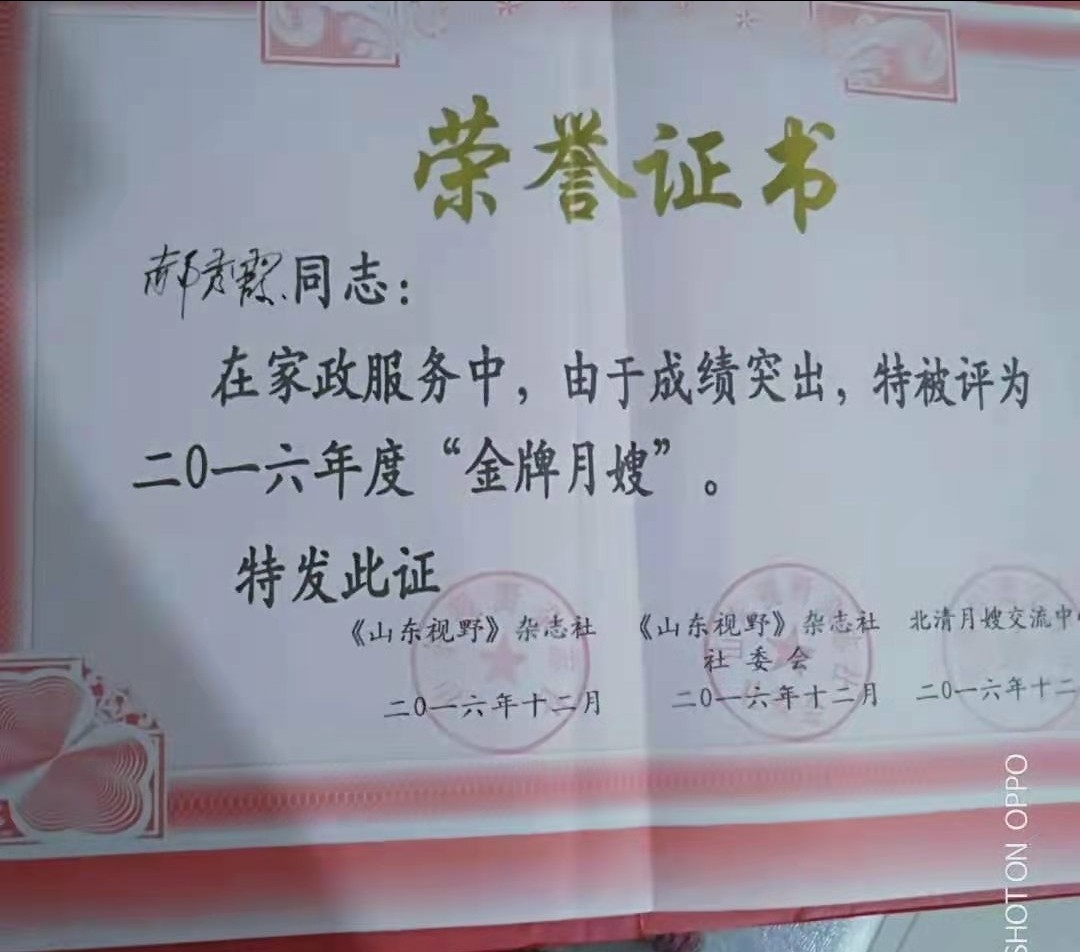 荣誉证书
郝秀霞同志：
在家政服务中，由于成绩突出，特被评为
二0一六年度“金牌月嫂”。
特发此证
《山东视野》杂志社
二0一六年十二月
《山东视野》杂志社
社委会
二0一六年十二月
北清月嫂交流中
二0一六年十二
SHOT ON OPPO